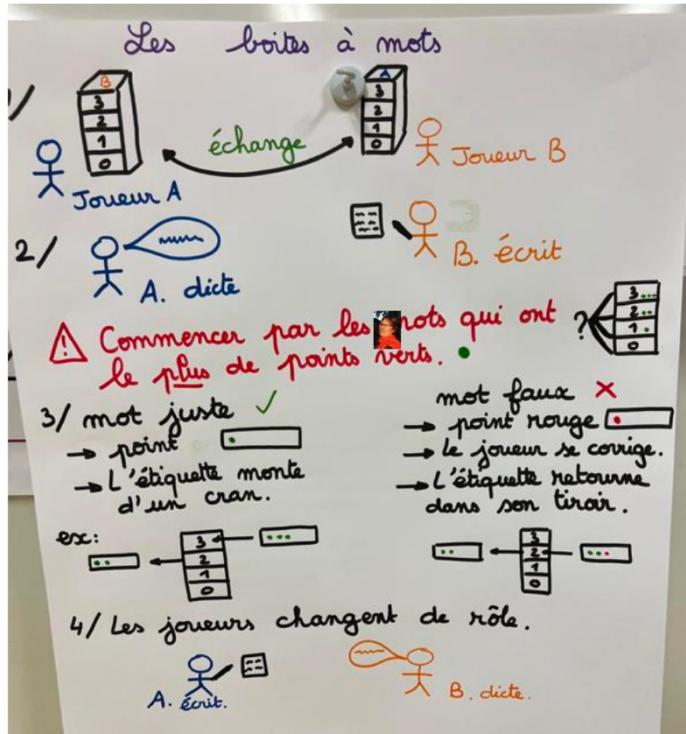 Les boites à mots
1/
B
3
2
1
0
A
3
2
1
0
échange
Joueur A
Joueur B
2/
A. dicte
B. écrit
Commencer par les mots qui ont
le plus de points verts.
?
3
2
1
0
3/ mot juste ✓
→ point
→ L'étiquette monte
d'un cran.
mot faux ✗
→ point rouge
→ Le joueur se corrige.
→ L'étiquette retourne
dans son tiroir.
ex:
3
2
1
0
3
2
1
0
4/ Les joueurs changent de rôle.
A. écrit.
B. dicte.